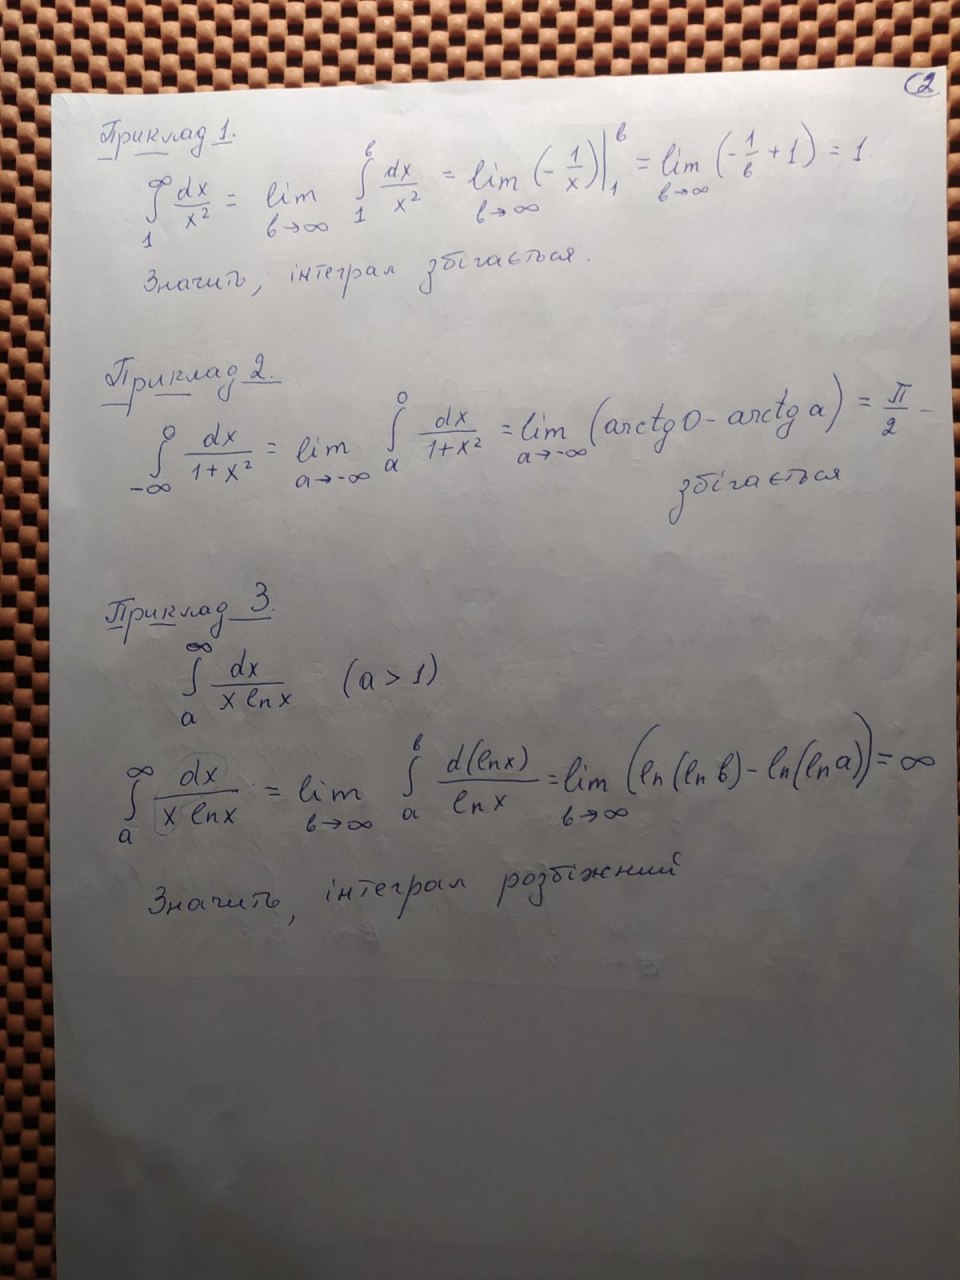 С2
Приклад 1.
∫₁^∞ dx/x² = lim_{в→∞} ∫₁^в dx/x² = lim_{в→∞} (-1/x)|₁^в = lim_{в→∞} (-1/в + 1) = 1.
Значить, інтеграл збігається.
Приклад 2.
∫_{-∞}^0 dx/(1+x²) = lim_{a→-∞} ∫_a^0 dx/(1+x²) = lim_{a→-∞} (arctg 0 - arctg a) = π/2 –
збігається
Приклад 3.
∫_a^∞ dx/(x ln x) (a > 1)
∫_a^∞ dx/(x ln x) = lim_{в→∞} ∫_a^в d(ln x)/ln x = lim_{в→∞} (ln(ln в) - ln(ln a)) = ∞
Значить, інтеграл розбіжний